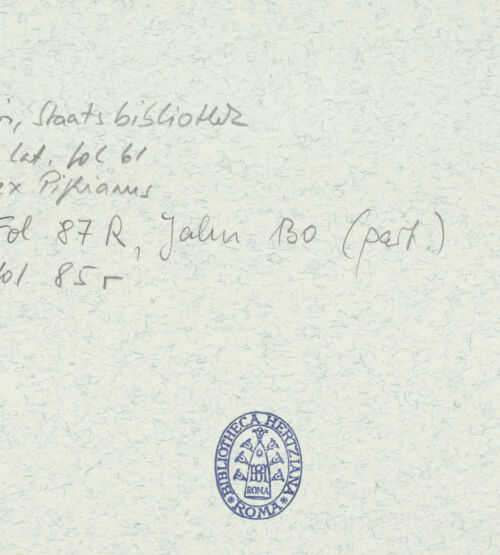 n, Staatsbibliothek
lat. fol 61
ex Pighianus
Fol 87 R, Jahn 130 (part.)
fol 85 r
BIBLIOTHECA HERTZIANA
ROMA
BH
ROMA